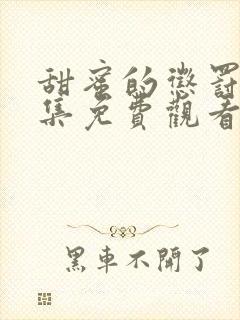 甜蜜的懲罰
集免費觀看
黑車不開了